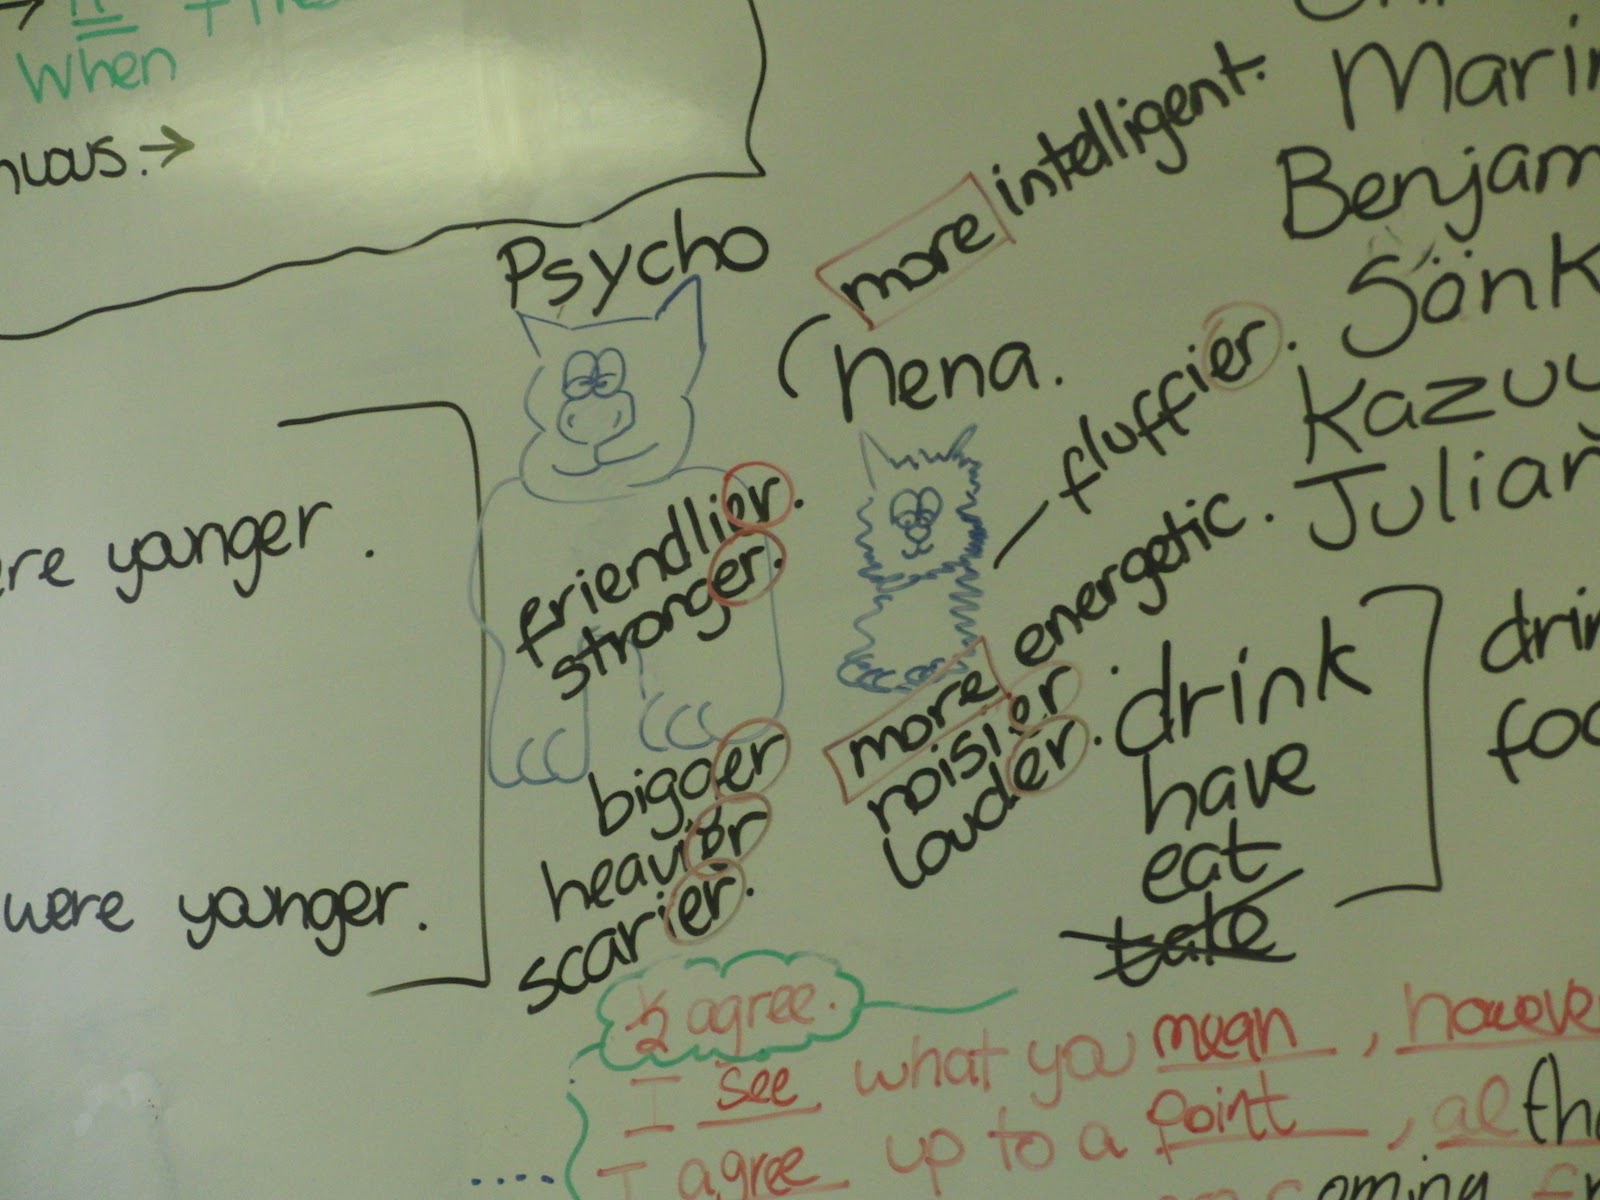 When
nuous. →
Psycho
friendlier.
stronger.
bigger
heavier
scarier.
more intelligent.
Nena.
fluffier.
more energetic.
noisier
louder.
Marin
Benjam
Sönk
Kazuu
Julian
ere younger.
were younger.
drink
have
eat
take
drin
foo
½ agree.
I see what you mean, howeve
I agree up to a point, altho
oming fr